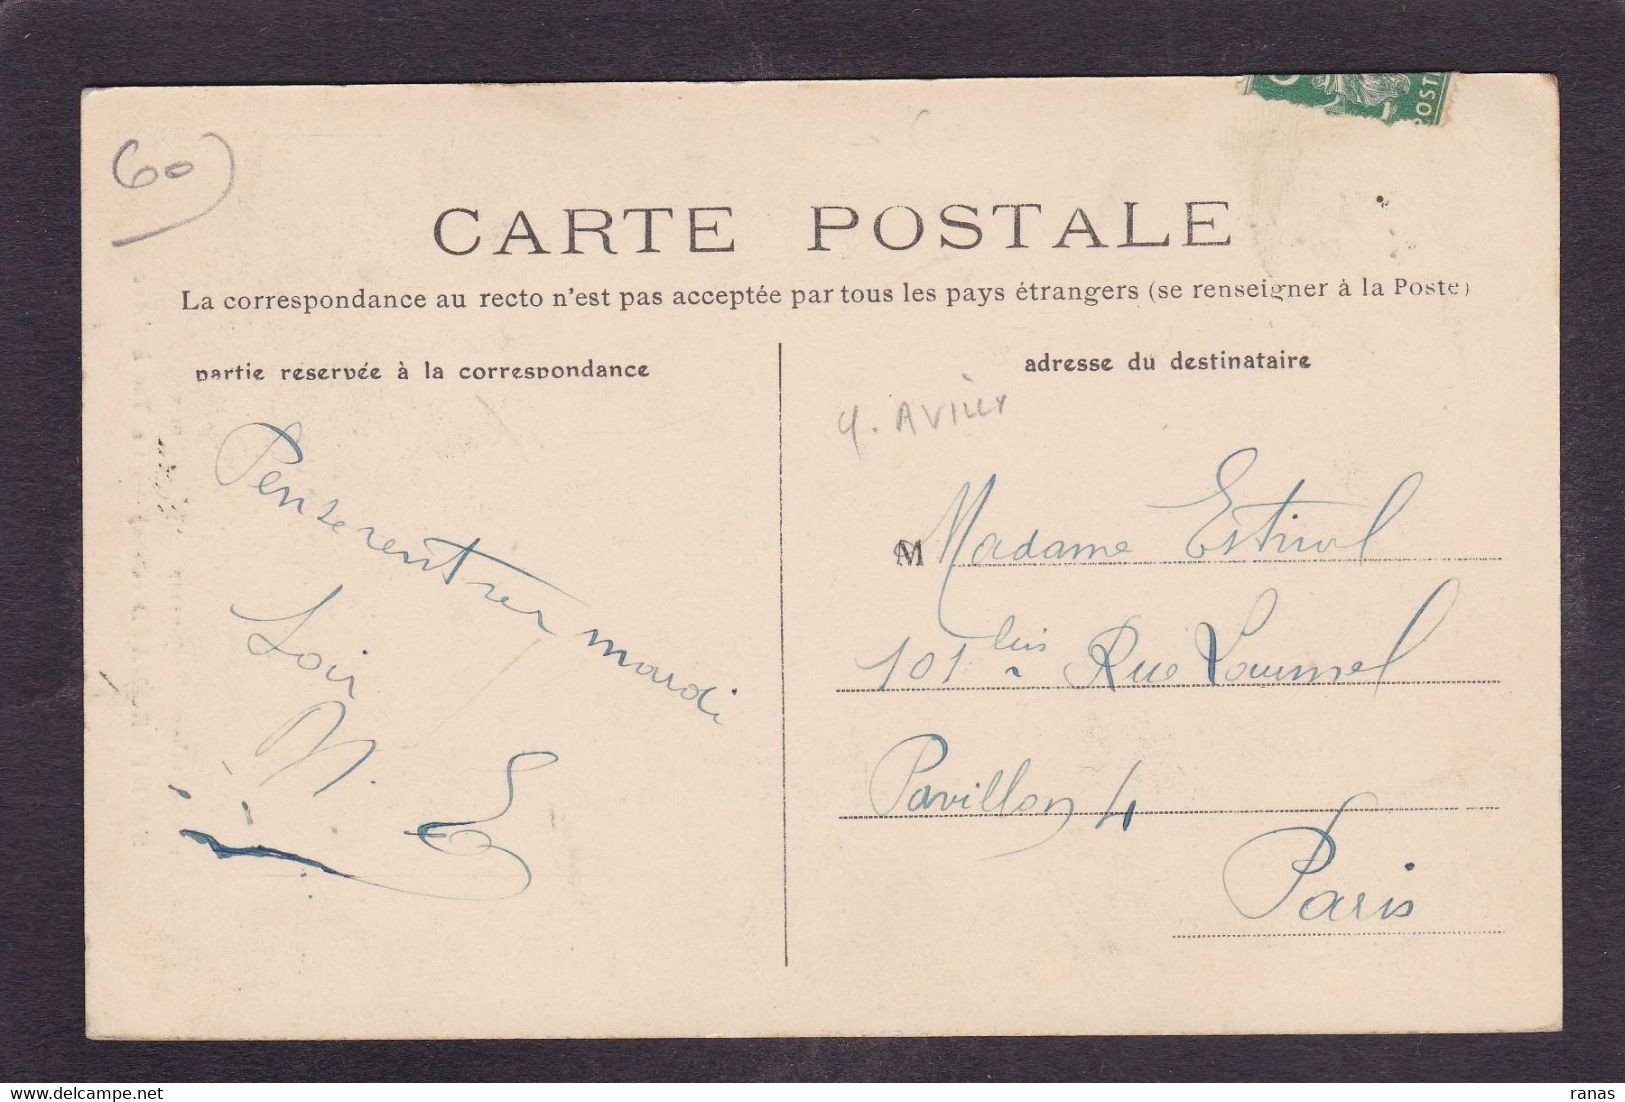 60
POSTE
CARTE POSTALE
La correspondance au recto n'est pas acceptée par tous les pays étrangers (se renseigner à la Poste)
partie reservée à la correspondance
Pense rentrer mardi
Soir
adresse du destinataire
AVILLY
M Madame Estival
101 bis Rue Lourmel
Pavillon 4
Paris
delcampe.net
ranas